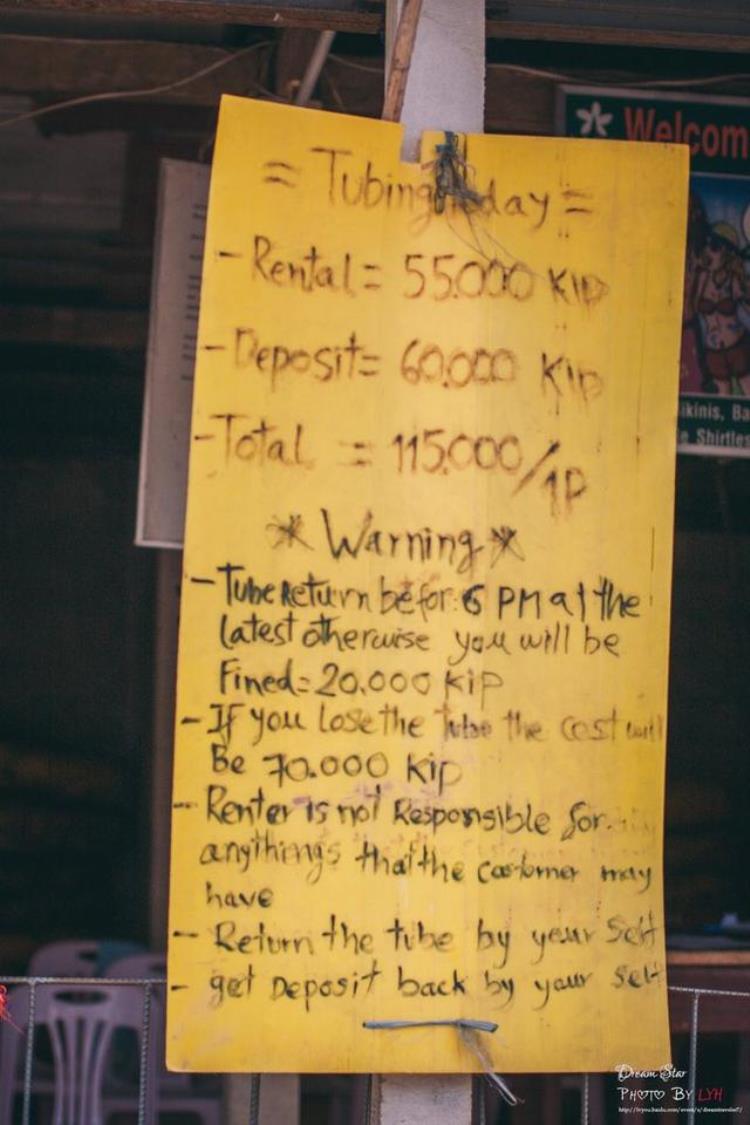 = Tubing day =
- Rental = 55.000 Kip
- Deposit = 60.000 Kip
- Total = 115.000/1P
* Warning *
- Tube Return befor 6 PM at the
latest otherwise you will be
Fined = 20.000 Kip
- If you Lose the Tube the cost will
Be 70.000 Kip
- Renter is not Responsible for
anythings that the customer may
have
- Return the tube by your self
- get Deposit back by your self
Welcom
ikinis, Ba
Shirtles
Dream Star
PHOTO BY LYH